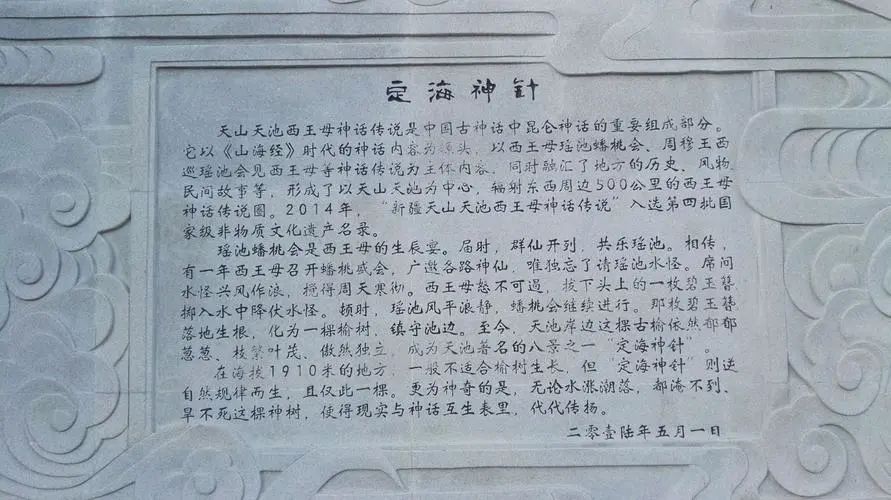 定海神针
天山天池西王母神话传说是中国古神话中昆仑神话的重要组成部分。
它以《山海经》时代的神话内容为源头，以西王母瑶池蟠桃会、周穆王西
巡瑶池会见西王母等神话传说为主体内容，同时融汇了地方的历史、风物、
民间故事等，形成了以天山天池为中心，辐射东西周边500公里的西王母
神话传说圈。2014年，“新疆天山天池西王母神话传说”入选第四批国
家级非物质文化遗产名录。
瑶池蟠桃会是西王母的生辰宴。届时，群仙开列，共乐瑶池。相传，
有一年西王母召开蟠桃盛会，广邀各路神仙，唯独忘了请瑶池水怪。席间
水怪兴风作浪，搅得周天寒彻。西王母怒不可遏，拔下头上的一枚碧玉簪
掷入水中降伏水怪。顿时，瑶池风平浪静，蟠桃会继续进行。那枚碧玉簪
落地生根，化为一棵榆树，镇守池边。至今，天池岸边这棵古榆依然郁郁
葱葱、枝繁叶茂、傲然独立，成为天池著名的八景之一“定海神针”。
在海拔1910米的地方，一般不适合榆树生长，但“定海神针”则逆
自然规律而生，且仅此一棵。更为神奇的是，无论水涨潮落，都淹不到、
旱不死这棵神树，使得现实与神话互生表里，代代传扬。
二零壹陆年五月一日